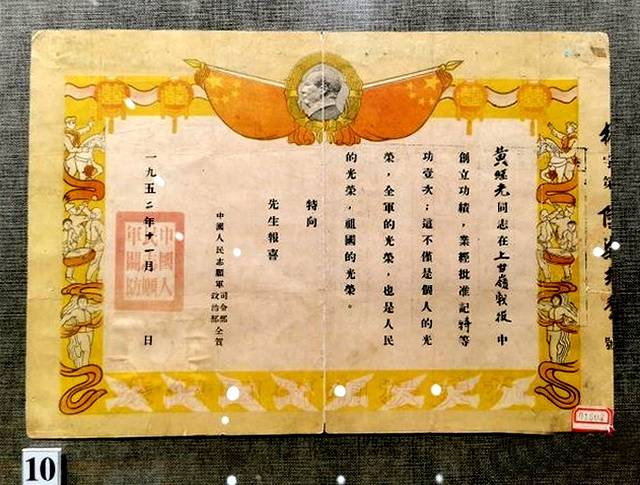 號
黃継光同志在上甘嶺戰役中
創立功績，業經批准記特等
功壹次；這不僅是個人的光
榮，全軍的光榮，也是人民
的光榮，祖國的光榮。
特向
先生報喜
中國人民志願軍
司令部
政治部
全賀
一九五二年十一月 日
中國人
民志願
軍關防
10